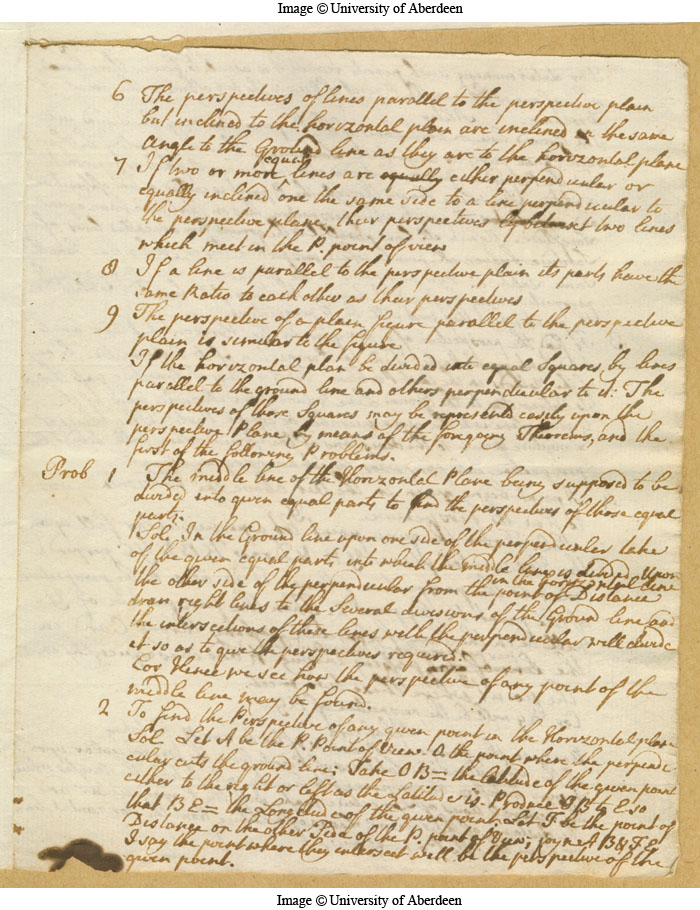 Image © University of Aberdeen
6 The perspectives of lines parallel to the perspective plain
but inclined to the horizontal plain are inclined in the same
Angle to the Ground line as they are to the horizontal plane
equal
7 If two or more lines are equally either perpendicular or
equally inclined one the same side to a line perpendicular to
the perspective plane, their perspectives two lines
which meet in the P. point of view
8 If a line is parallel to the perspective plain its parts have the
same Ratio to each other as their perspectives
9 The perspective of a plain figure parallel to the perspective
plain is similar to the figure
If the horizontal plan be divided into equal Squares by lines
parallel to the ground line and others perpendicular to it: The
perspectives of those Squares may be represented easily upon the
perspective Plane by means of the foregoing Theorems, and the
first of the following Problems.
Prob 1 The middle line of the Horizontal Plane being supposed to be
divided into given equal parts to find the perspectives of those equal
parts.
Sol. In the Ground line upon one side of the perpendicular take
of the given equal parts into which the middle line is divided Upon
in the horizontal line
the other side of the perpendicular from the point of Distance
draw right lines to the several divisions of the Ground line and
the intersections of these lines with the perpendicular will divide
it so as to give the perspectives required.
Cor Hence we see how the perspective of any point of the
middle line may be found.
2 To find the Perspective of any given point in the Horizontal plane
Sol Let A be the P. Point of View. O the point where the perpendi
cular cuts the ground line; Take O B = the Latitude of the given point
either to the right or left as the Latitude is. Produce O B to E so
that B E = the Longitude of the given point. Let F be the point of
Distance on the other Side of the P. point of View; joyn A B & F E
I say the point where they intersect will be the perspective of the
given point.
Image © University of Aberdeen